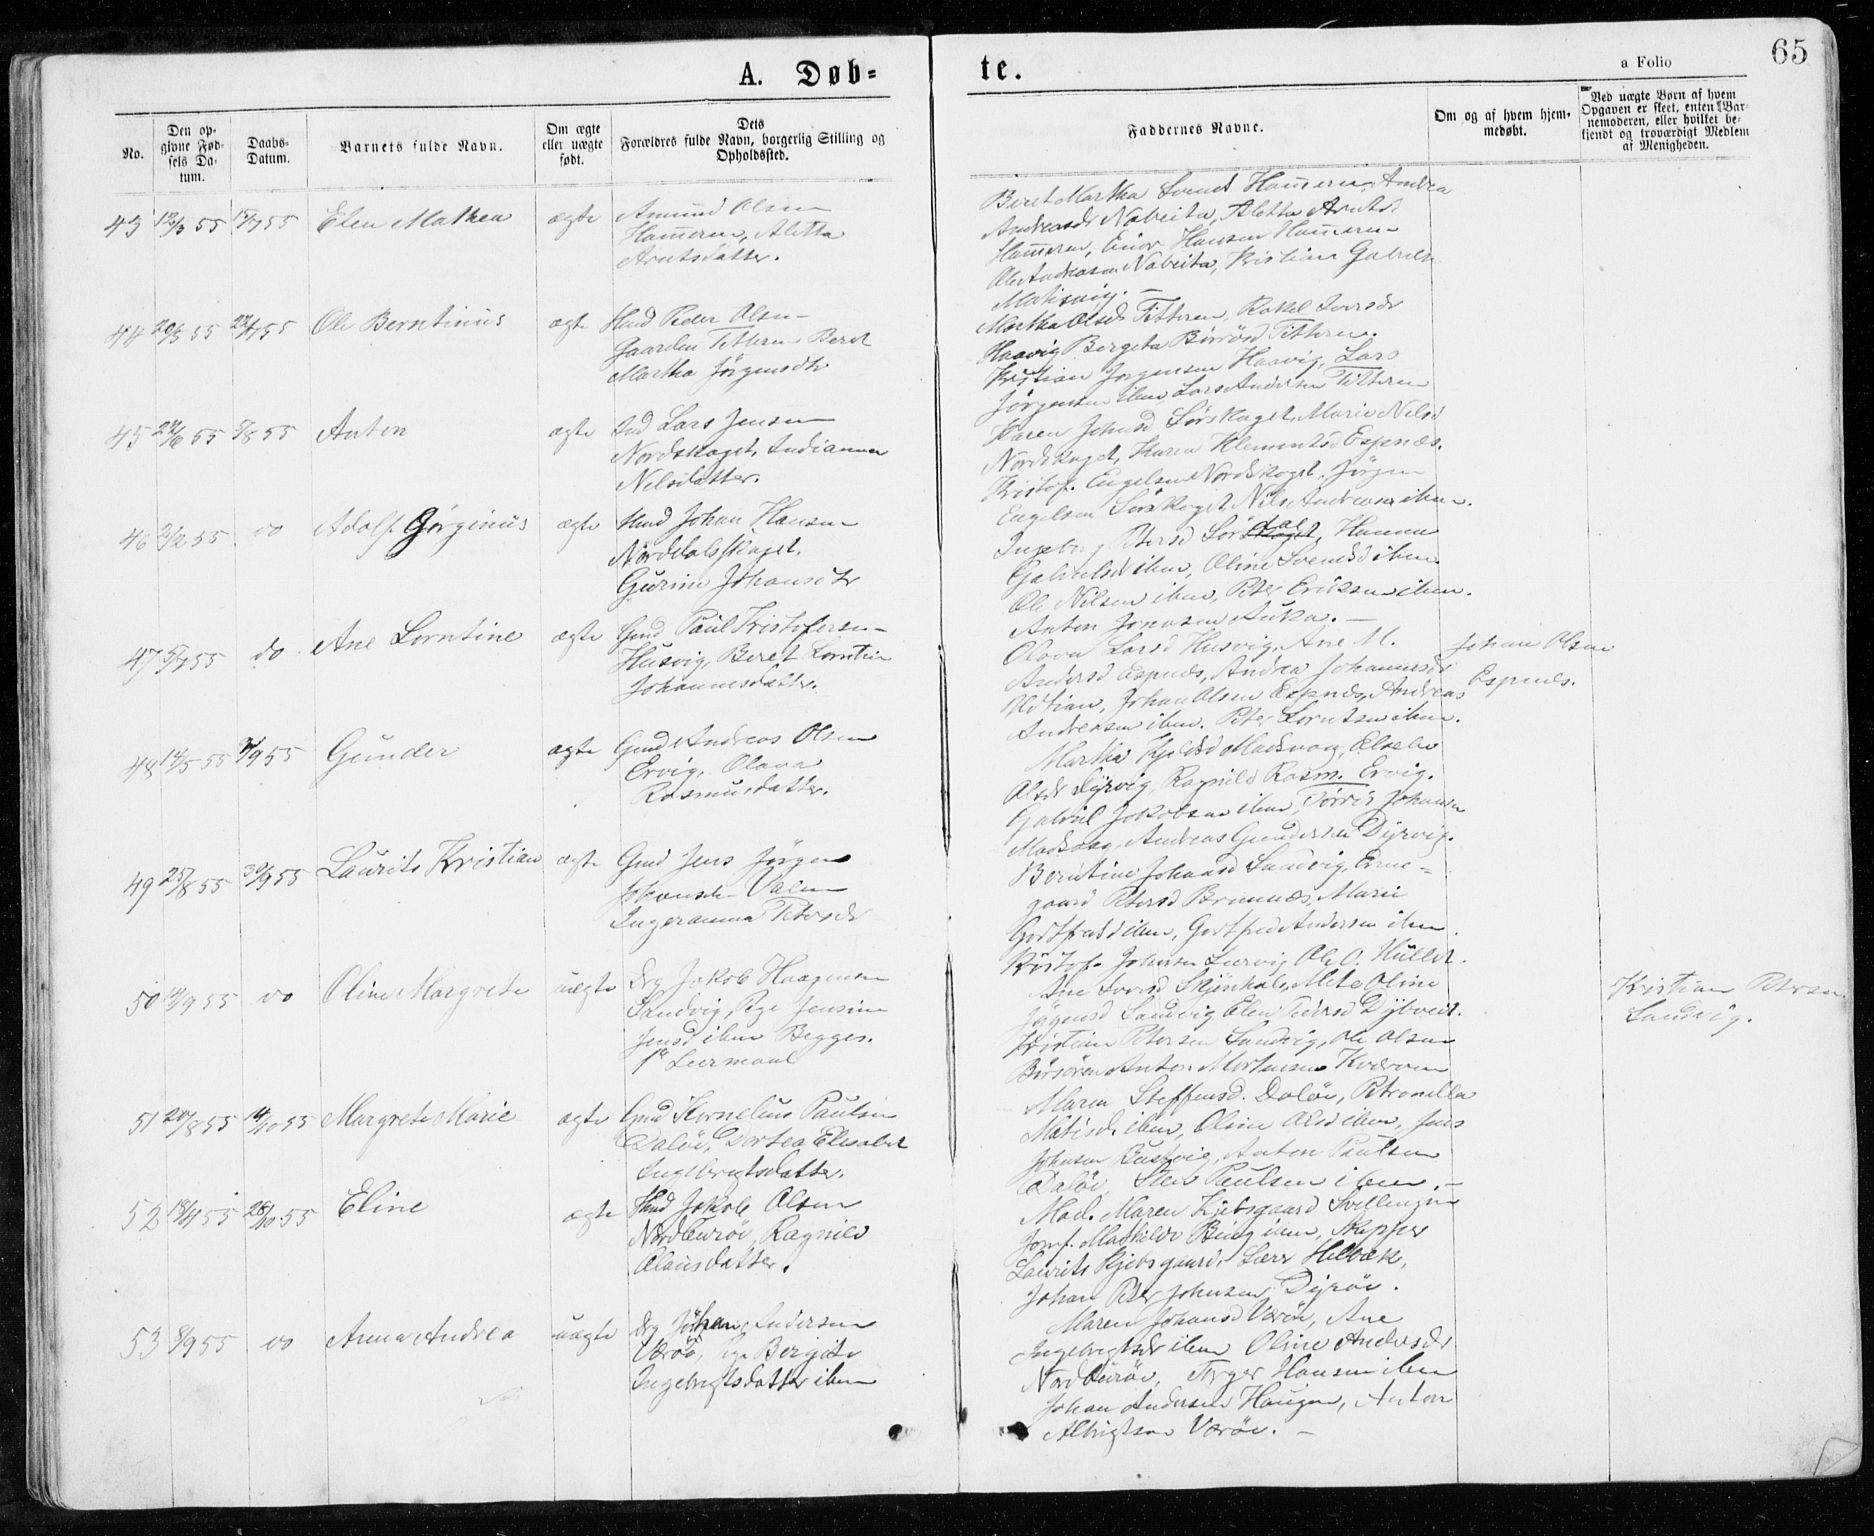 A. Døb=
te.
a Folio
65
No.
Den op-
givne Fød-
sels Da-
tum.
Daabs-
Datum.
Barnets fulde Navn.
Om ægte
eller uægte
født.
Dets
Forældres fulde Navn, borgerlig Stilling og
Opholdssted.
Faddernes Navne.
Om og af hvem hjem-
medøbt.
Ved uægte Børn af hvem
Opgaven er skeet, enten Bar-
nemoderen, eller hvilket be-
kjendt og troværdigt Medlem
af Menigheden.
43 12/3 55 15/7 55 Elen Mathea ægte Amund Olsen
Hammeren, Aletta
Arntsdatter.
Beret Martha Svends Hammeren, Andrea
Andreasdr Nabeita, Aletta Arntsd
Hammeren, Einor Hansen Hammeren
Ole Andreasen Nabeita, Kristian Gabriels
44 20/5 55 22/7 55 Ole Berntinus ægte Hmd Peder Olsen
Gaarden Titteren Beret
Martha Jørgensdtr
Martha Olsdr Titteren, Rakel
Haavig Titteren.
Kristian Jørgensen Haavig, Lars
Jørgensen ibm, Lars Andersen Titteren
45 22/6 55 5/8 55 Anton ægte Lars Jensen
Nordskaget, Indianna
Nilsdatter.
Karen Johnsd Sørskaget, Marie Nilsd
Nordskaget, Karen Klementsd Espnæs.
Kristof. Engelsen Nordskaget, Jørgen
Engelsen Sørskaget Nils Andreasen ibm.
46 2/2 55 do Adolf Gørginius ægte Hmd Johan Hansen
Norddalsskaget,
Gurine Johansdtr
Ingeborg Petersd Hanna
Gabrielsd ibm, Oline Svendsd ibm.
Ole Nilsen ibm, Peter Eriksen ibm.
Anton Jonasen Auka. —
47 5/7 55 do Ane Lorntine ægte Gmd Paul Kristofersen
Husvig, Beret Lorntine
Johannesdatter.
Olava Larsd Husvig, Ane M.
Andersd Espnæs, Andrea Johannesdr
Uttian, Johan Olsen Espnæs, Andreas
Andreasen ibm. Peter Lorntsen ibm.
Johan Olsen
Espnæs.
48 14/5 55 9/9 55 Gunder ægte Gmd Andreas Olsen
Ervig, Olava
Rasmusdatter.
Martha Kjelsd Madsvaag, Elsebe
Olsdr Dyrvig, Ragnild Rasm. Ervig.
Gabriel Jokobsen ibm, Torris Johansen
Madsvaag, Andreas Gundersen Dyrvig.
49 25/8 55 30/9 55 Laurits Kristian ægte Gmd Jens Jørgen
Johansen Valen
Ingeranna Petersdr
Berntine Johansd Sandvig,
Petersd Bremnæs, Marie
Gottfredsd ibm, Gottfred Andersen ibm.
Kristof. Johnsen Ole O.
50 14/9 55 do Oline Margrete uægte Jakob Haagensen
Sandvig, Pige Jensine
Jensd ibm Begges.
1ste Leiermaal
Mete Oline
Sandvig Elen Pedersd Dybveit.
Kristian Petersen Sandvig, Ole Olsen
Børøsøren Anton Mortensen
Kristian Petersen
Sandvig.
51 20/8 55 14/10 55 Margrete Marie ægte Gmd Kornelius Paulsen
Daløi, Dortea Elisabet
Ingebrigtsdatter.
Maren Steffensd. Daløi, Petronella
Matisd. ibm, Oline Olsd ibm, Jens
Johnsen Anton Paulsen
Daløi, Sten Paulsen ibm. —
52 18/4 55 28/10 55 Eline ægte Hmd Jakob Olsen
Ragnild
Olausdatter.
Mad. Maren Kjebsgaard Svellingen
Jomf. Mathilde ibm, Skipper
Laurits Kjebsgaard, Lærer Holbæk,
Johan Peter Johnsen, Dyrøi.
53 8/9 55 do Anna Andrea uægte Johan Andersen
Værøi, Pige Bergite
Ingebrigtsdatter ibm
Maren Johansd Værøi, Ane
Ingebrigtsdr ibm Oline Andersdr
Hansen ibm
Johan Andersen Haugen, Anton
Albrigtsen Værøi. —